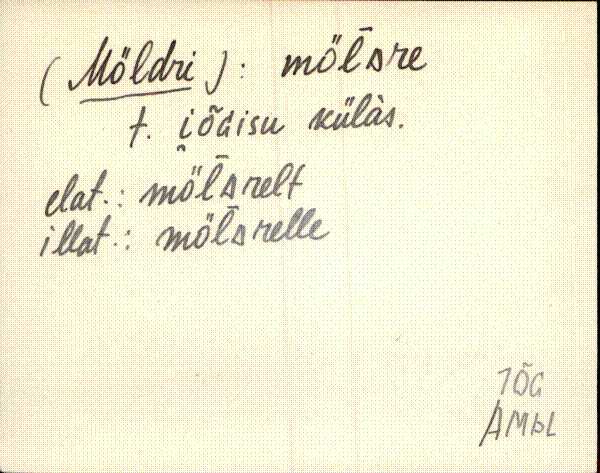 (Möldri): möl̄ᴅre
t. i̯õɢisu külàs.
elat.: möl̄ᴅrelt
illat.: möl̄ᴅrelle
JÕG
AMbL